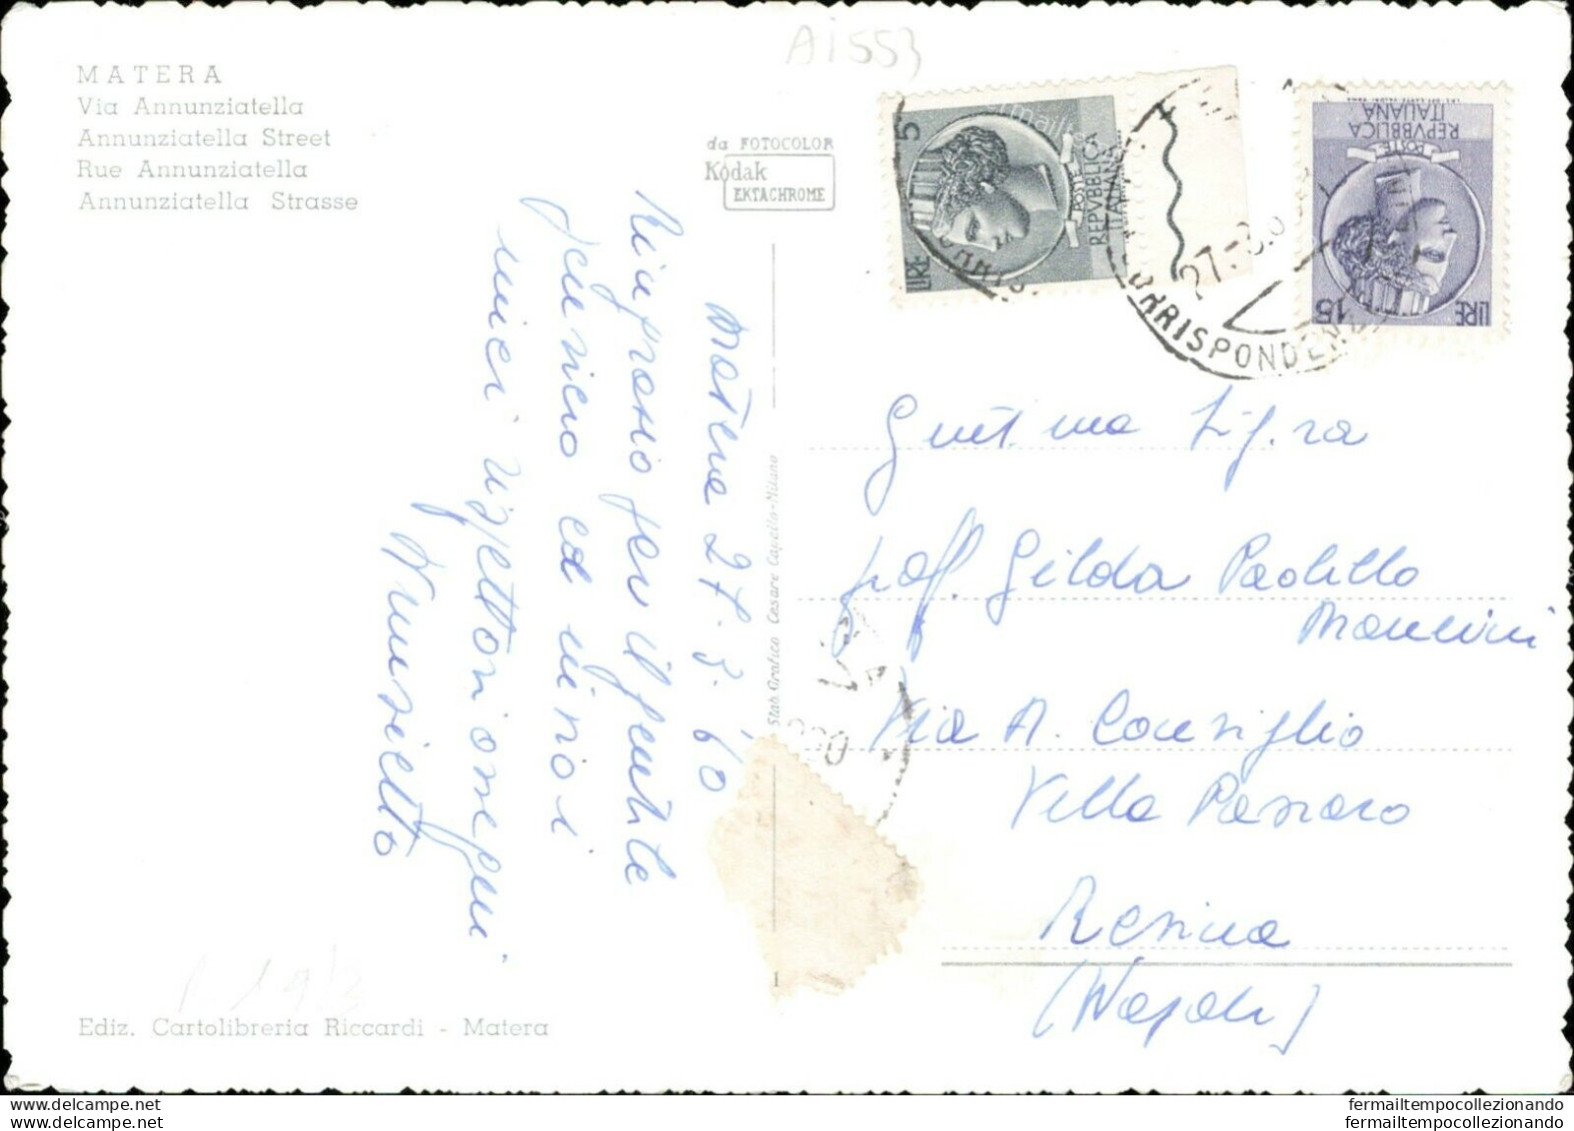 AI553
MATERA
Via Annunziatella
Annunziatella Street
Rue Annunziatella
Annunziatella Strasse
da FOTOCOLOR
Kodak
EKTACHROME
5
LIRE
POSTE
REPVBBLICA
ITALIANA
27-3.6
CORRISPONDENZE
REPVBBLICA
ITALIANA
POSTE
LIRE 15
Matera 27.3.60
Ringrazio per il gentile
pensiero ed invio i
miei rispettosi ossequi
Stab. Grafico Cesare Capello-Milano
Gent.ma Sig.ra
prof. Gilda Paolillo
Mancini
Via A. Consiglio
Villa Passaro
Resina
(Napoli)
1
Ediz. Cartolibreria Riccardi - Matera
fermailtempocollezionando
fermailtempocollezionando
fermailtempocollezionando
fermailtempocollezionando